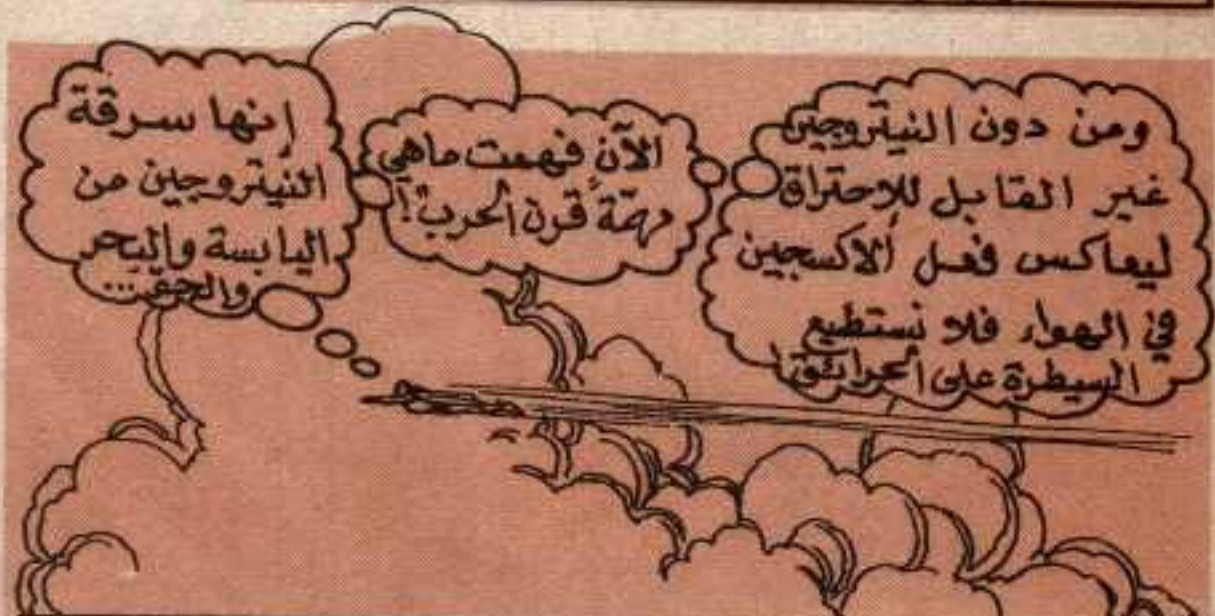 ومن دون النيتروجين
غير القابل للاحتراق
ليعاكس فعل الاكسجين
في الهواء فلا نستطيع
السيطرة على الحرائق!
الآن فهمت ماهي
مهمّة قرن الحرب!
إنها سرقة
النيتروجين من
اليابسة والبحر
والجو...